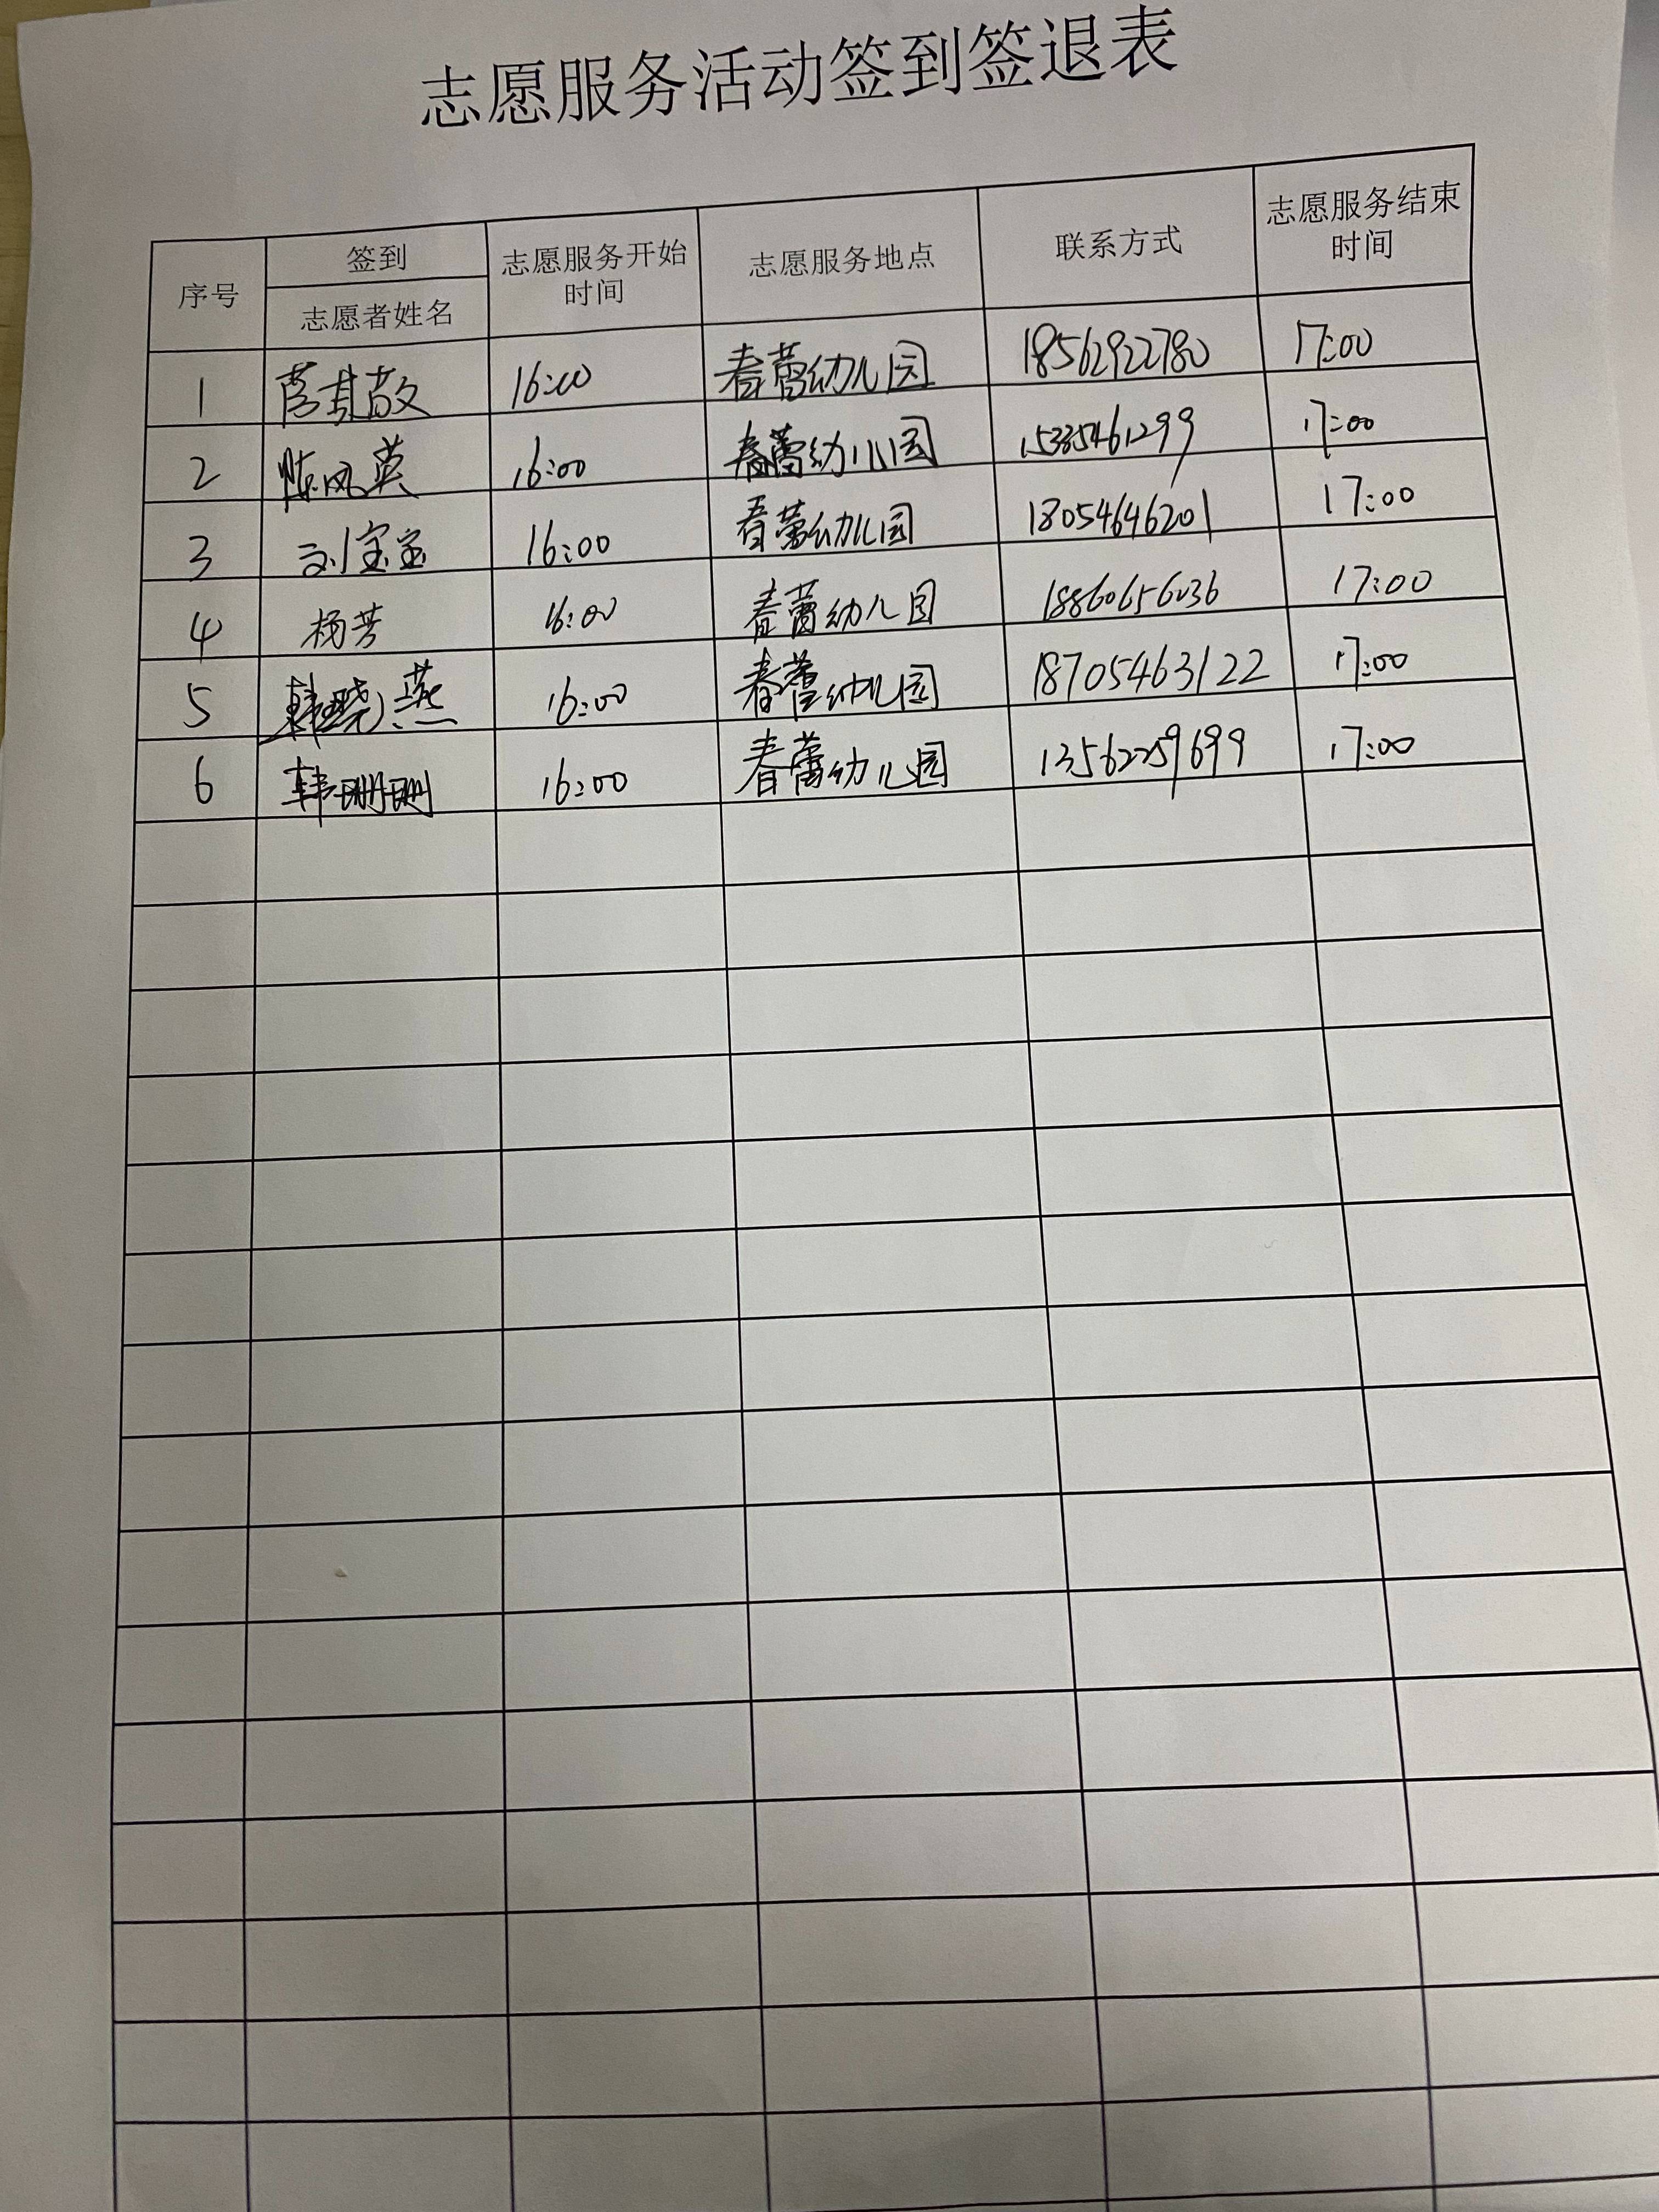 志愿服务活动签到签退表
序号 签到 志愿者姓名 志愿服务开始时间 志愿服务地点 联系方式 志愿服务结束时间
1 16:00 春蕾幼儿园 18562922780 17:00
2 陈凤英 16:00 春蕾幼儿园 15385461299 17:00
3 刘宝宝 16:00 春蕾幼儿园 18054646201 17:00
4 杨芳 16:00 春蕾幼儿园 18860656036 17:00
5 韩晓燕 16:00 春蕾幼儿园 18705463122 17:00
6 韩珊珊 16:00 春蕾幼儿园 13562259699 17:00